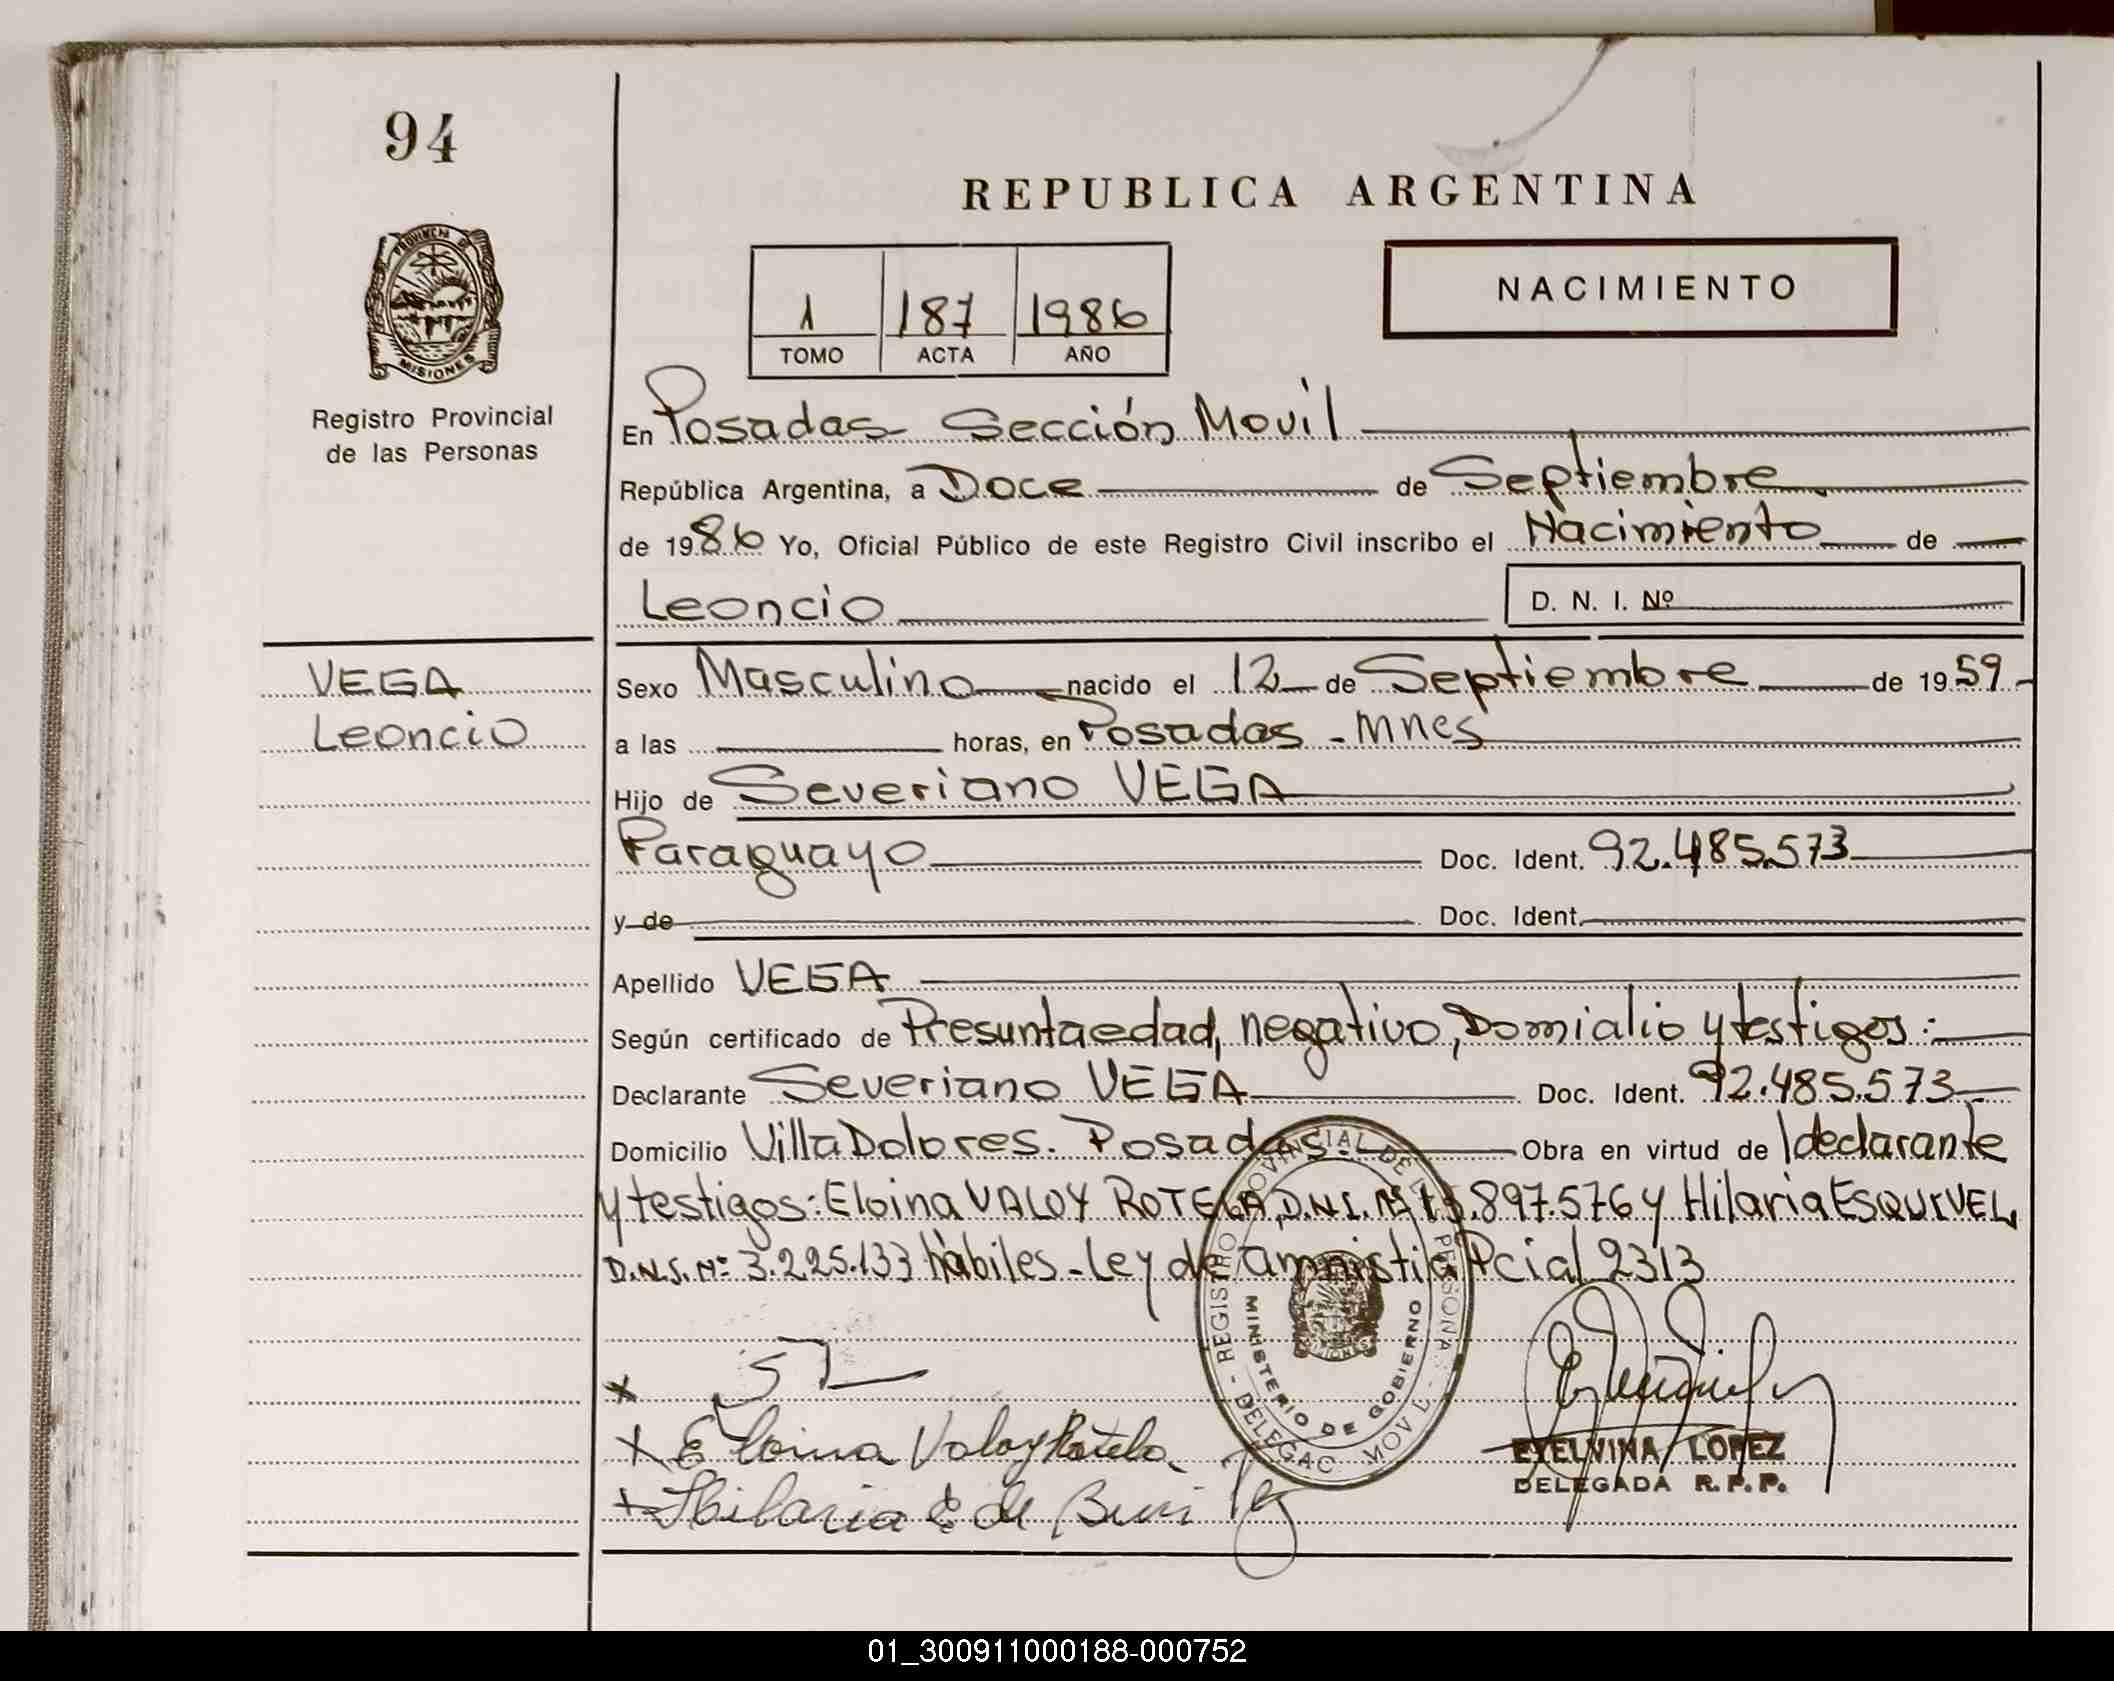 94
REPUBLICA ARGENTINA
PROVINCIA DE
MISIONES
Registro Provincial
de las Personas
1 187 1986
TOMO ACTA AÑO
NACIMIENTO
En Posadas Sección Movil
República Argentina, a Doce de Septiembre
de 1986 Yo, Oficial Público de este Registro Civil inscribo el Nacimiento de
Leoncio D. N. I. Nº
VEGA
Leoncio
Sexo Masculino nacido el 12 de Septiembre de 1959
a las horas, en Posadas - Mnes
Hijo de Severiano VEGA
Paraguayo Doc. Ident. 92.485.573
y de Doc. Ident.
Apellido VEGA
Según certificado de Presunta edad, negativo, Domicilio y testigos:
Declarante Severiano VEGA Doc. Ident. 92.485.573
Domicilio Villa Dolores. Posadas. Obra en virtud de declarante
y testigos: Eloina VALOY ROTELA, D.N.I. Nº 13.897.576 y Hilaria ESQUIVEL,
D.N.I. Nº 3.225.133 hábiles - Ley de amnistia Pcial 2313
REGISTRO PROVINCIAL DE LAS PERSONAS - DELEGAC. MOVIL -
MINISTERIO DE GOBIERNO
Eloina Valoy Rotela
Hilaria E de
ETELVINA LOPEZ
DELEGADA R.P.P.
01_300911000188-000752